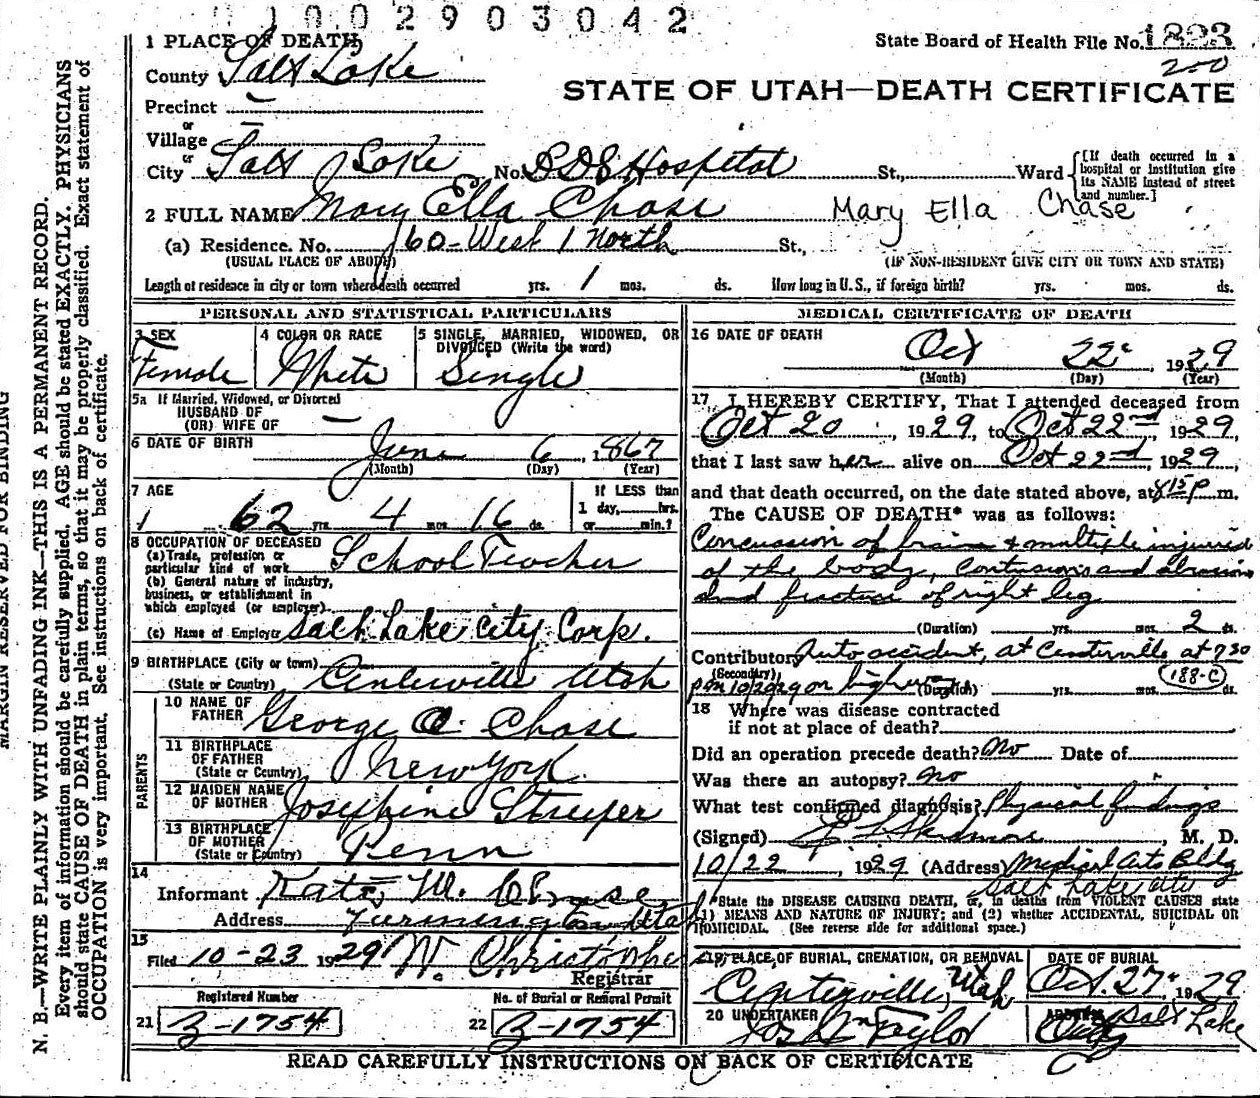 1002903042
State Board of Health File No. 1823
200
STATE OF UTAH—DEATH CERTIFICATE
1 PLACE OF DEATH
County Salt Lake
Precinct —
or
Village —
or
City Salt Lake No. LDS Hospital St., Ward
[If death occurred in a hospital or institution give its NAME instead of street and number.]
2 FULL NAME Mary Ella Chase Mary Ella Chase
(a) Residence. No. 160-West 1 North St.,
(USUAL PLACE OF ABODE) (IF NON-RESIDENT GIVE CITY OR TOWN AND STATE)
Length of residence in city or town where death occurred yrs. 1 mos. ds. How long in U. S., if foreign birth? yrs. mos. ds.
PERSONAL AND STATISTICAL PARTICULARS
3 SEX
Female
4 COLOR OR RACE
White
5 SINGLE, MARRIED, WIDOWED, OR DIVORCED (Write the word)
Single
5a If Married, Widowed, or Divorced
HUSBAND OF
(OR) WIFE OF —
6 DATE OF BIRTH June 6, 1867
(Month) (Day) (Year)
7 AGE
62 yrs. 4 mos. 16 ds.
If LESS than
1 day, hrs.
or min.?
8 OCCUPATION OF DECEASED
(a) Trade, profession or
particular kind of work School Teacher
(b) General nature of industry,
business, or establishment in
which employed (or employer)
(c) Name of Employer Salt Lake City Corp.
9 BIRTHPLACE (City or town)
(State or Country) Centerville Utah
PARENTS
10 NAME OF
FATHER George O. Chase
11 BIRTHPLACE
OF FATHER
(State or Country) New York
12 MAIDEN NAME
OF MOTHER Josephine Streeper
13 BIRTHPLACE
OF MOTHER
(State or Country) Penn
14
Informant Kate M. Chase
Address Farmington Utah
15
Filed 10-23 1929 W. Christophe
Registrar
Registered Number
21 B-1754
No. of Burial or Removal Permit
22 B-1754
MEDICAL CERTIFICATE OF DEATH
16 DATE OF DEATH
Oct 22, 1929
(Month) (Day) (Year)
17 I HEREBY CERTIFY, That I attended deceased from
Oct 20, 1929, to Oct 22nd, 1929,
that I last saw her alive on Oct 22nd, 1929,
and that death occurred, on the date stated above, at 8 15 P m.
The CAUSE OF DEATH* was as follows:
Concussion of brain & multiple injuries
of the body, Contusions and abrasions
and fracture of right leg
(Duration) yrs. mos. 2 ds.
Contributory Auto accident, at Centerville at 7 30
(Secondary)
pm 10/20/29 on highway (Duration) yrs. mos. ds.
(188-C)
18 Where was disease contracted
if not at place of death?
Did an operation precede death? No Date of
Was there an autopsy? no
What test confirmed diagnosis? Physical findings
(Signed) M. D.
10/22, 1929 (Address) Medical Arts Bldg
Salt Lake City
*State the DISEASE CAUSING DEATH, or, in deaths from VIOLENT CAUSES state
(1) MEANS AND NATURE OF INJURY; and (2) whether ACCIDENTAL, SUICIDAL OR
HOMICIDAL. (See reverse side for additional space.)
19 PLACE OF BURIAL, CREMATION, OR REMOVAL
Centerville, Utah
DATE OF BURIAL
Oct. 27, 1929
20 UNDERTAKER
Taylor
ADDRESS
Salt Lake
City
READ CAREFULLY INSTRUCTIONS ON BACK OF CERTIFICATE
MARGIN RESERVED FOR BINDING
N. B.—WRITE PLAINLY WITH UNFADING INK—THIS IS A PERMANENT RECORD.
Every item of information should be carefully supplied. AGE should be stated EXACTLY. PHYSICIANS
should state CAUSE OF DEATH in plain terms, so that it may be properly classified. Exact statement of
OCCUPATION is very important. See instructions on back of certificate.